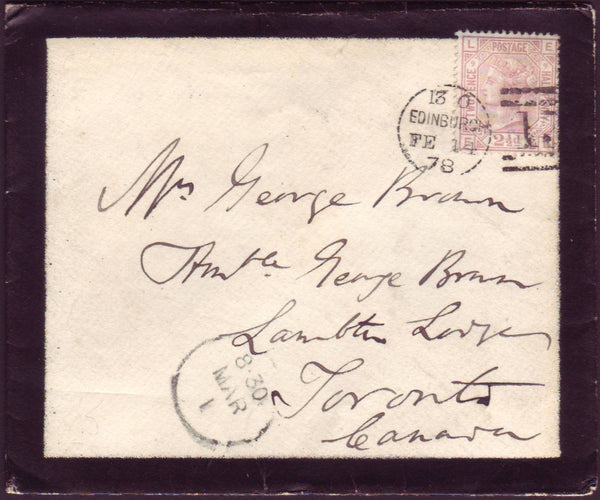 L POSTAGE E
13 O
EDINBURGH
FE 14
78
Mrs George Brown
Honble George Brown
Lambton Lodge
Toronto
Canada
8.30
MAR
1